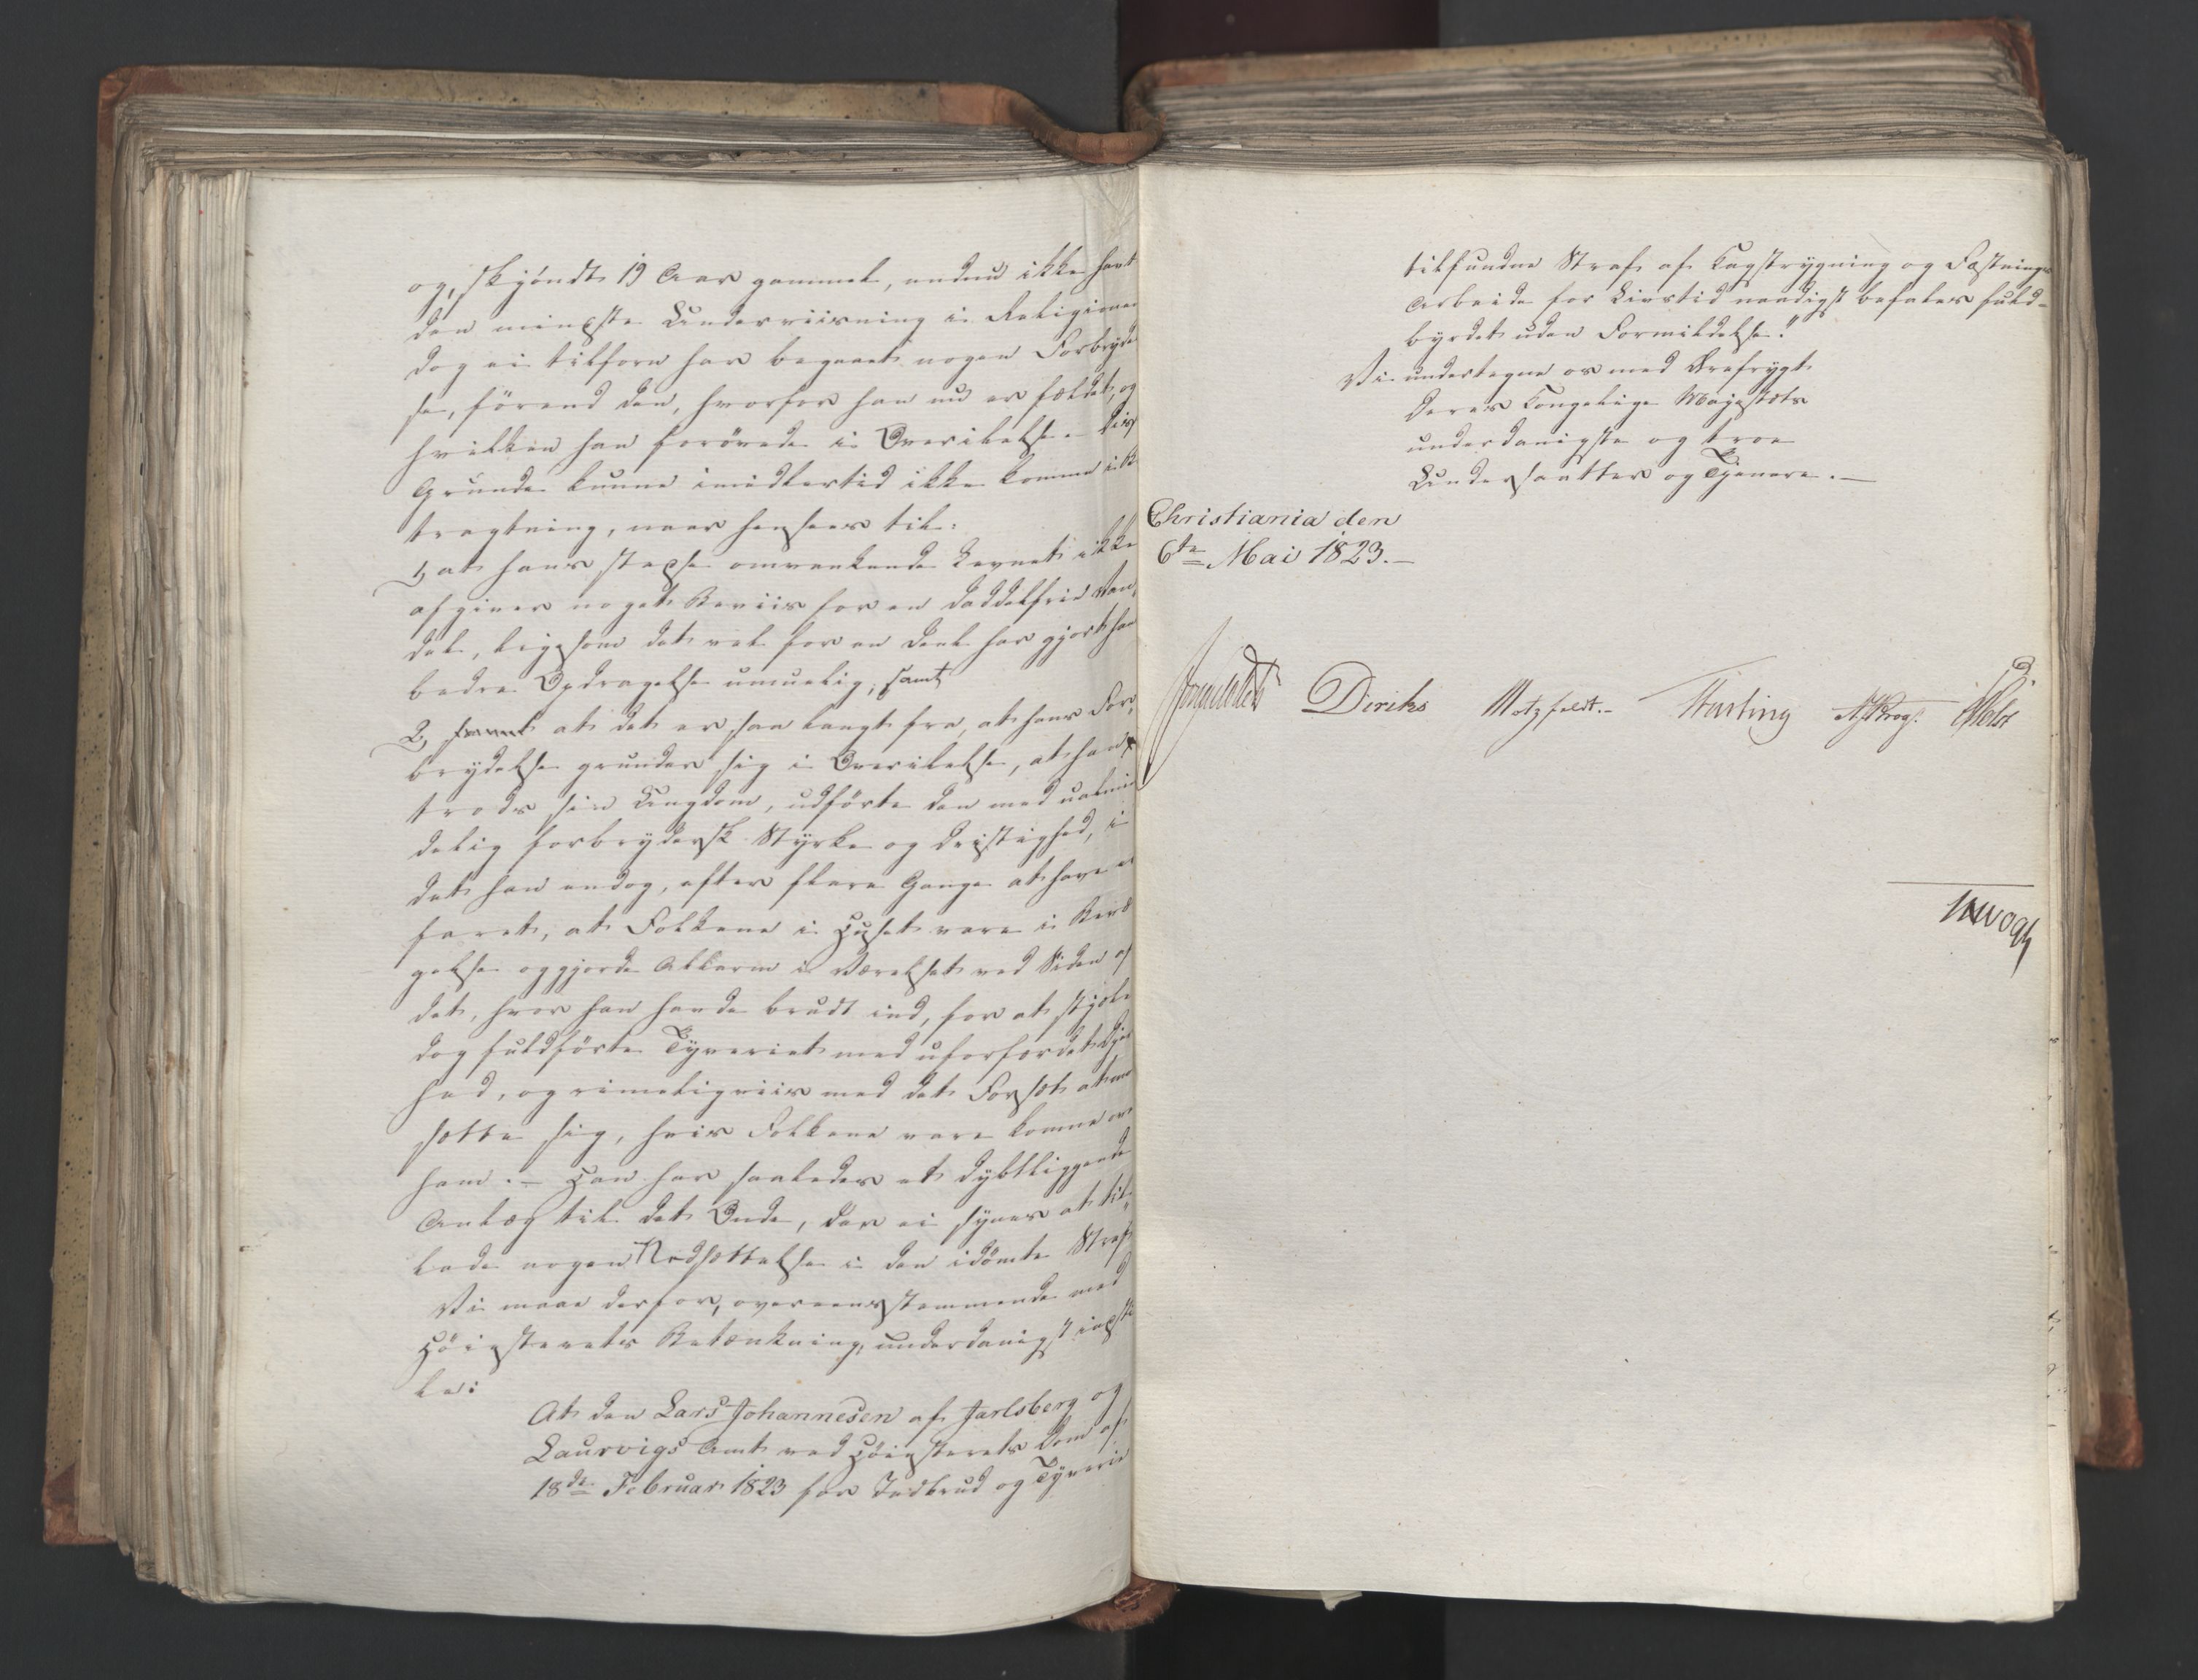 og, skjöndt 19 Aar gammel, endnu ikke havt
den mindste Underviisning i Religionen
dog ei tilforn har begaaet nogen Forbrydel
se, förend den, hvorfor han nu er fældet, og
hvilken han forövede i Overilelse. Disse
Grunde kunne imidlertid ikke komme i Be
tragtning, naar hensees til:
1, at hans stedse omvankende Levnet ikke
afgiver noget Beviis for en daddelfrie Van,
del, ligesom det vel for en Deel har gjort hans
bedre Opdragelse umuelig, samt
2, at det er saa langt fra, at hans For,
brydelse grunder sig i Overilelse, at han,
trods sin Ungdom, udförte den med ualmin
delig forbrydersk Styrke og Dristighed, i
det han endog, efter flere Gange at have er
faret, at Folkene i Huset vare i Bevæ
gelse og gjorde Allarm i Værelset ved Siden af
det, hvor han havde brudt ind, for at stjæle
dog fuldförte Tyveriet med uforfærdet Djerv
hed, og rimeligviis med det Forsæt at mod
sætte sig, hvis Folkene vare komne over
ham. – Han har saaledes et dybtliggende
Anlæg til det Onde, der ei synes at til,
lade nogen Nedsættelse i den idömte Straf
Vi maae derfor, overeensstemmende med
Höiesterets Betænkning, underdanigst indstil
le:
At den Lars Johannesen af Jarlsberg og
Laurvigs Amt ved Höiesterets Dom af
18de Februar 1823 for Indbrud og Tyverie
tilfundne Straf af Kagstrygning og Fæstnings
Arbeide for Livstid naadigst befales fuld=
byrdet uden Formildelse."
Vi undertegne os med Ærefrygt
Deres Kongelige Majestæts
underdanigste og troe
Undersaatter og Tjenere. –
Christiania den
6te Mai 1823. –
Diriks Motzfeldt. –